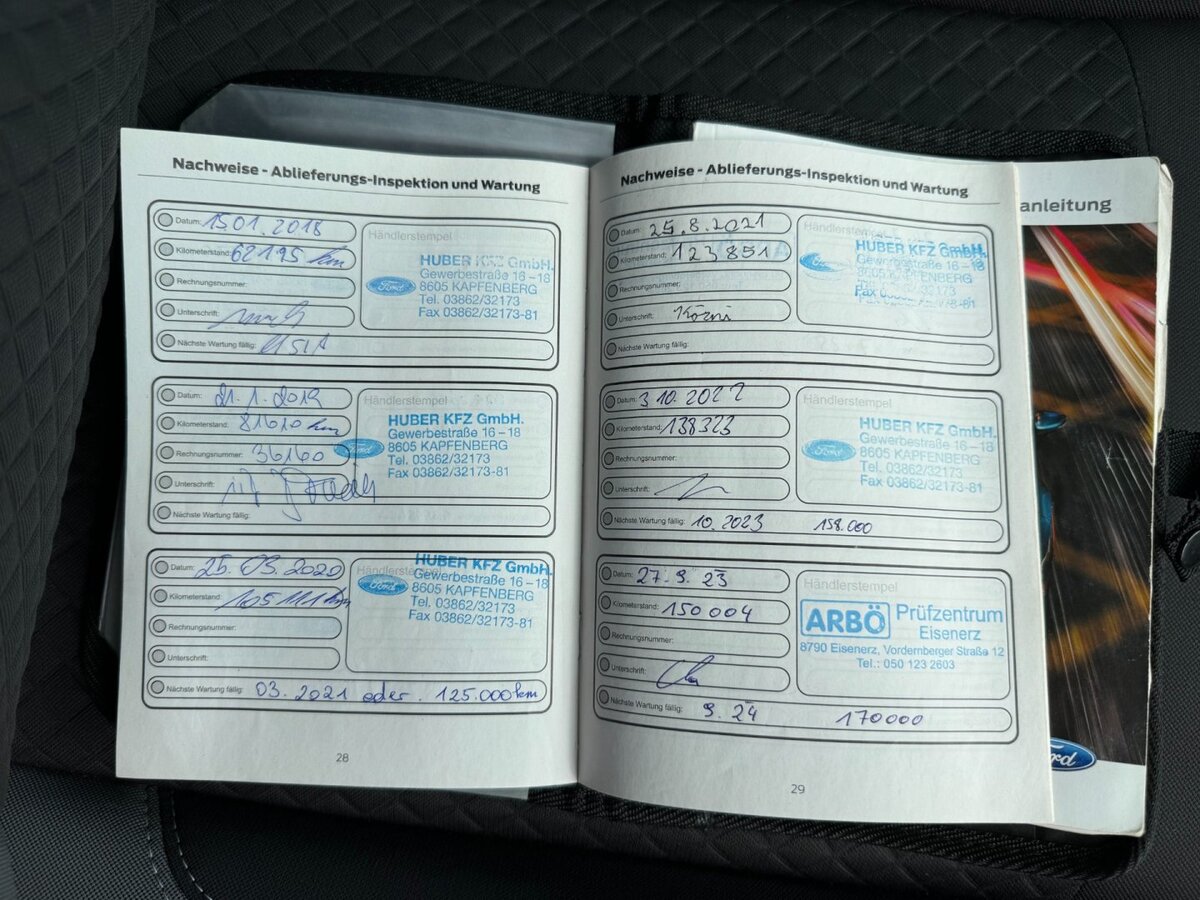 Nachweise - Ablieferungs-Inspektion und Wartung
Datum: 15.01.2018
Kilometerstand: 62195 km
Rechnungsnummer:
Unterschrift:
Nächste Wartung fällig:
Händlerstempel
Ford
HUBER KFZ GmbH.
Gewerbestraße 16 – 18
8605 KAPFENBERG
Tel. 03862/32173
Fax 03862/32173-81
Datum: 21.1.2019
Kilometerstand: 81610 km
Rechnungsnummer: 36160
Unterschrift:
Nächste Wartung fällig:
Händlerstempel
Ford
HUBER KFZ GmbH.
Gewerbestraße 16 – 18
8605 KAPFENBERG
Tel. 03862/32173
Fax 03862/32173-81
Datum: 25.03.2020
Kilometerstand: 105111 km
Rechnungsnummer:
Unterschrift:
Nächste Wartung fällig: 03.2021 oder 125.000km
Händlerstempel
Ford
HUBER KFZ GmbH.
Gewerbestraße 16 – 18
8605 KAPFENBERG
Tel. 03862/32173
Fax 03862/32173-81
28
Nachweise - Ablieferungs-Inspektion und Wartung
Datum: 25.8.2021
Kilometerstand: 123851
Rechnungsnummer:
Unterschrift:
Nächste Wartung fällig:
Händlerstempel
Ford
HUBER KFZ GmbH.
Gewerbestraße 16 – 18
8605 KAPFENBERG
Fax 03862/32173-81
Datum: 3.10.2022
Kilometerstand: 138323
Rechnungsnummer:
Unterschrift:
Nächste Wartung fällig: 10.2023 158.000
Händlerstempel
Ford
HUBER KFZ GmbH.
Gewerbestraße 16 – 18
8605 KAPFENBERG
Tel. 03862/32173
Fax 03862/32173-81
Datum: 27.9.23
Kilometerstand: 150004
Rechnungsnummer:
Unterschrift:
Nächste Wartung fällig: 9.24 170000
Händlerstempel
ARBÖ Prüfzentrum
Eisenerz
8790 Eisenerz, Vordernberger Straße 12
Tel.: 050 123 2603
29
anleitung